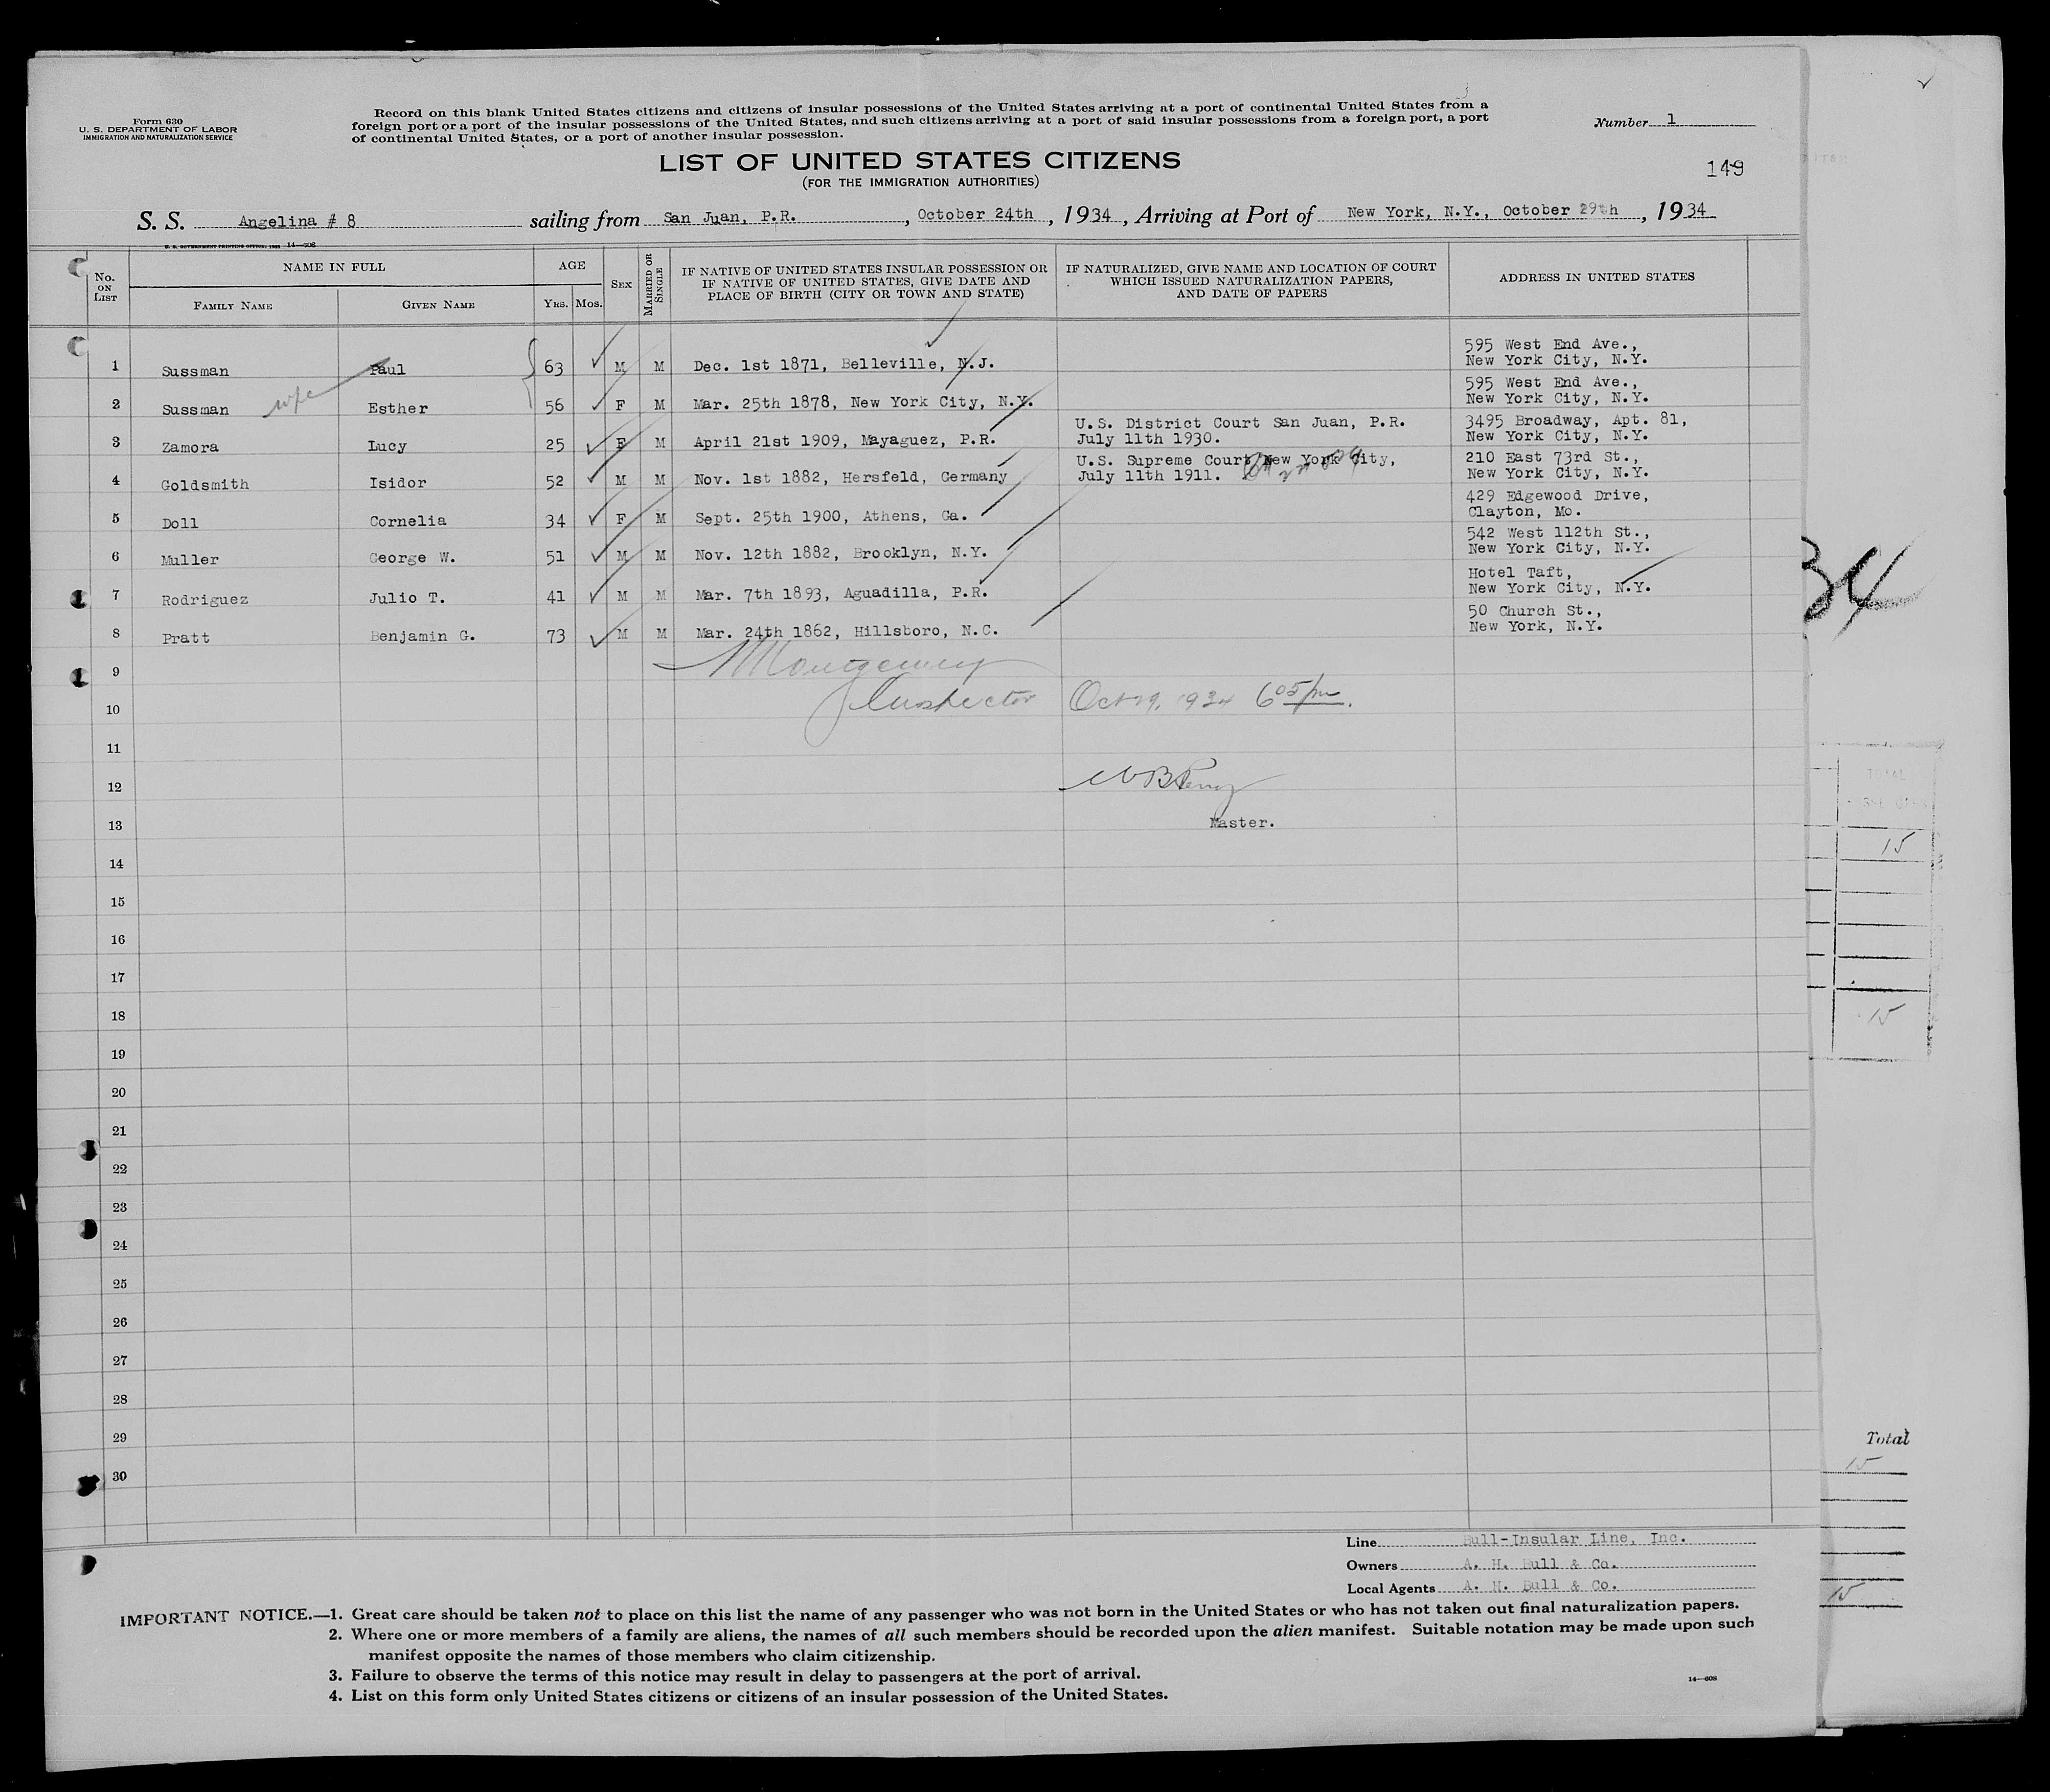 Form 630
U. S. DEPARTMENT OF LABOR
IMMIGRATION AND NATURALIZATION SERVICE
Record on this blank United States citizens and citizens of insular possessions of the United States arriving at a port of continental United States from a
foreign port or a port of the insular possessions of the United States, and such citizens arriving at a port of said insular possessions from a foreign port, a port
of continental United States, or a port of another insular possession.
Number 1
LIST OF UNITED STATES CITIZENS
(FOR THE IMMIGRATION AUTHORITIES)
149
S. S. Angelina # 8 sailing from San Juan, P.R. , October 24th , 1934 , Arriving at Port of New York, N.Y., October 29th , 1934
No. ON LIST
NAME IN FULL
FAMILY NAME
GIVEN NAME
AGE
YRS. MOS.
SEX
MARRIED OR SINGLE
IF NATIVE OF UNITED STATES INSULAR POSSESSION OR
IF NATIVE OF UNITED STATES, GIVE DATE AND
PLACE OF BIRTH (CITY OR TOWN AND STATE)
IF NATURALIZED, GIVE NAME AND LOCATION OF COURT
WHICH ISSUED NATURALIZATION PAPERS,
AND DATE OF PAPERS
ADDRESS IN UNITED STATES
595 West End Ave.,
1 Sussman Paul 63 M M Dec. 1st 1871, Belleville, N.J. New York City, N.Y.
wife
595 West End Ave.,
2 Sussman Esther 56 F M Mar. 25th 1878, New York City, N.Y. New York City, N.Y.
U.S. District Court San Juan, P.R. 3495 Broadway, Apt. 81,
3 Zamora Lucy 25 F M April 21st 1909, Mayaguez, P.R. July 11th 1930. New York City, N.Y.
U.S. Supreme Court New York City, 210 East 73rd St.,
4 Goldsmith Isidor 52 M M Nov. 1st 1882, Hersfeld, Germany July 11th 1911. New York City, N.Y.
429 Edgewood Drive,
5 Doll Cornelia 34 F M Sept. 25th 1900, Athens, Ga. Clayton, Mo.
542 West 112th St.,
6 Muller George W. 51 M M Nov. 12th 1882, Brooklyn, N.Y. New York City, N.Y.
Hotel Taft,
7 Rodriguez Julio T. 41 M M Mar. 7th 1893, Aguadilla, P.R. New York City, N.Y.
50 Church St.,
8 Pratt Benjamin G. 73 M M Mar. 24th 1862, Hillsboro, N.C. New York, N.Y.
9 Montgomery
10 Inspector Oct 29, 1934 6 05 pm.
11
12
13 Master.
14
15
16
17
18
19
20
21
22
23
24
25
26
27
28
29
30
Line Bull-Insular Line, Inc.
Owners A. H. Bull & Co.
Local Agents A. H. Bull & Co.
IMPORTANT NOTICE.—1. Great care should be taken not to place on this list the name of any passenger who was not born in the United States or who has not taken out final naturalization papers.
2. Where one or more members of a family are aliens, the names of all such members should be recorded upon the alien manifest. Suitable notation may be made upon such
manifest opposite the names of those members who claim citizenship.
3. Failure to observe the terms of this notice may result in delay to passengers at the port of arrival.
4. List on this form only United States citizens or citizens of an insular possession of the United States.
14—608
34
TOTAL
15
15
Total
15
15